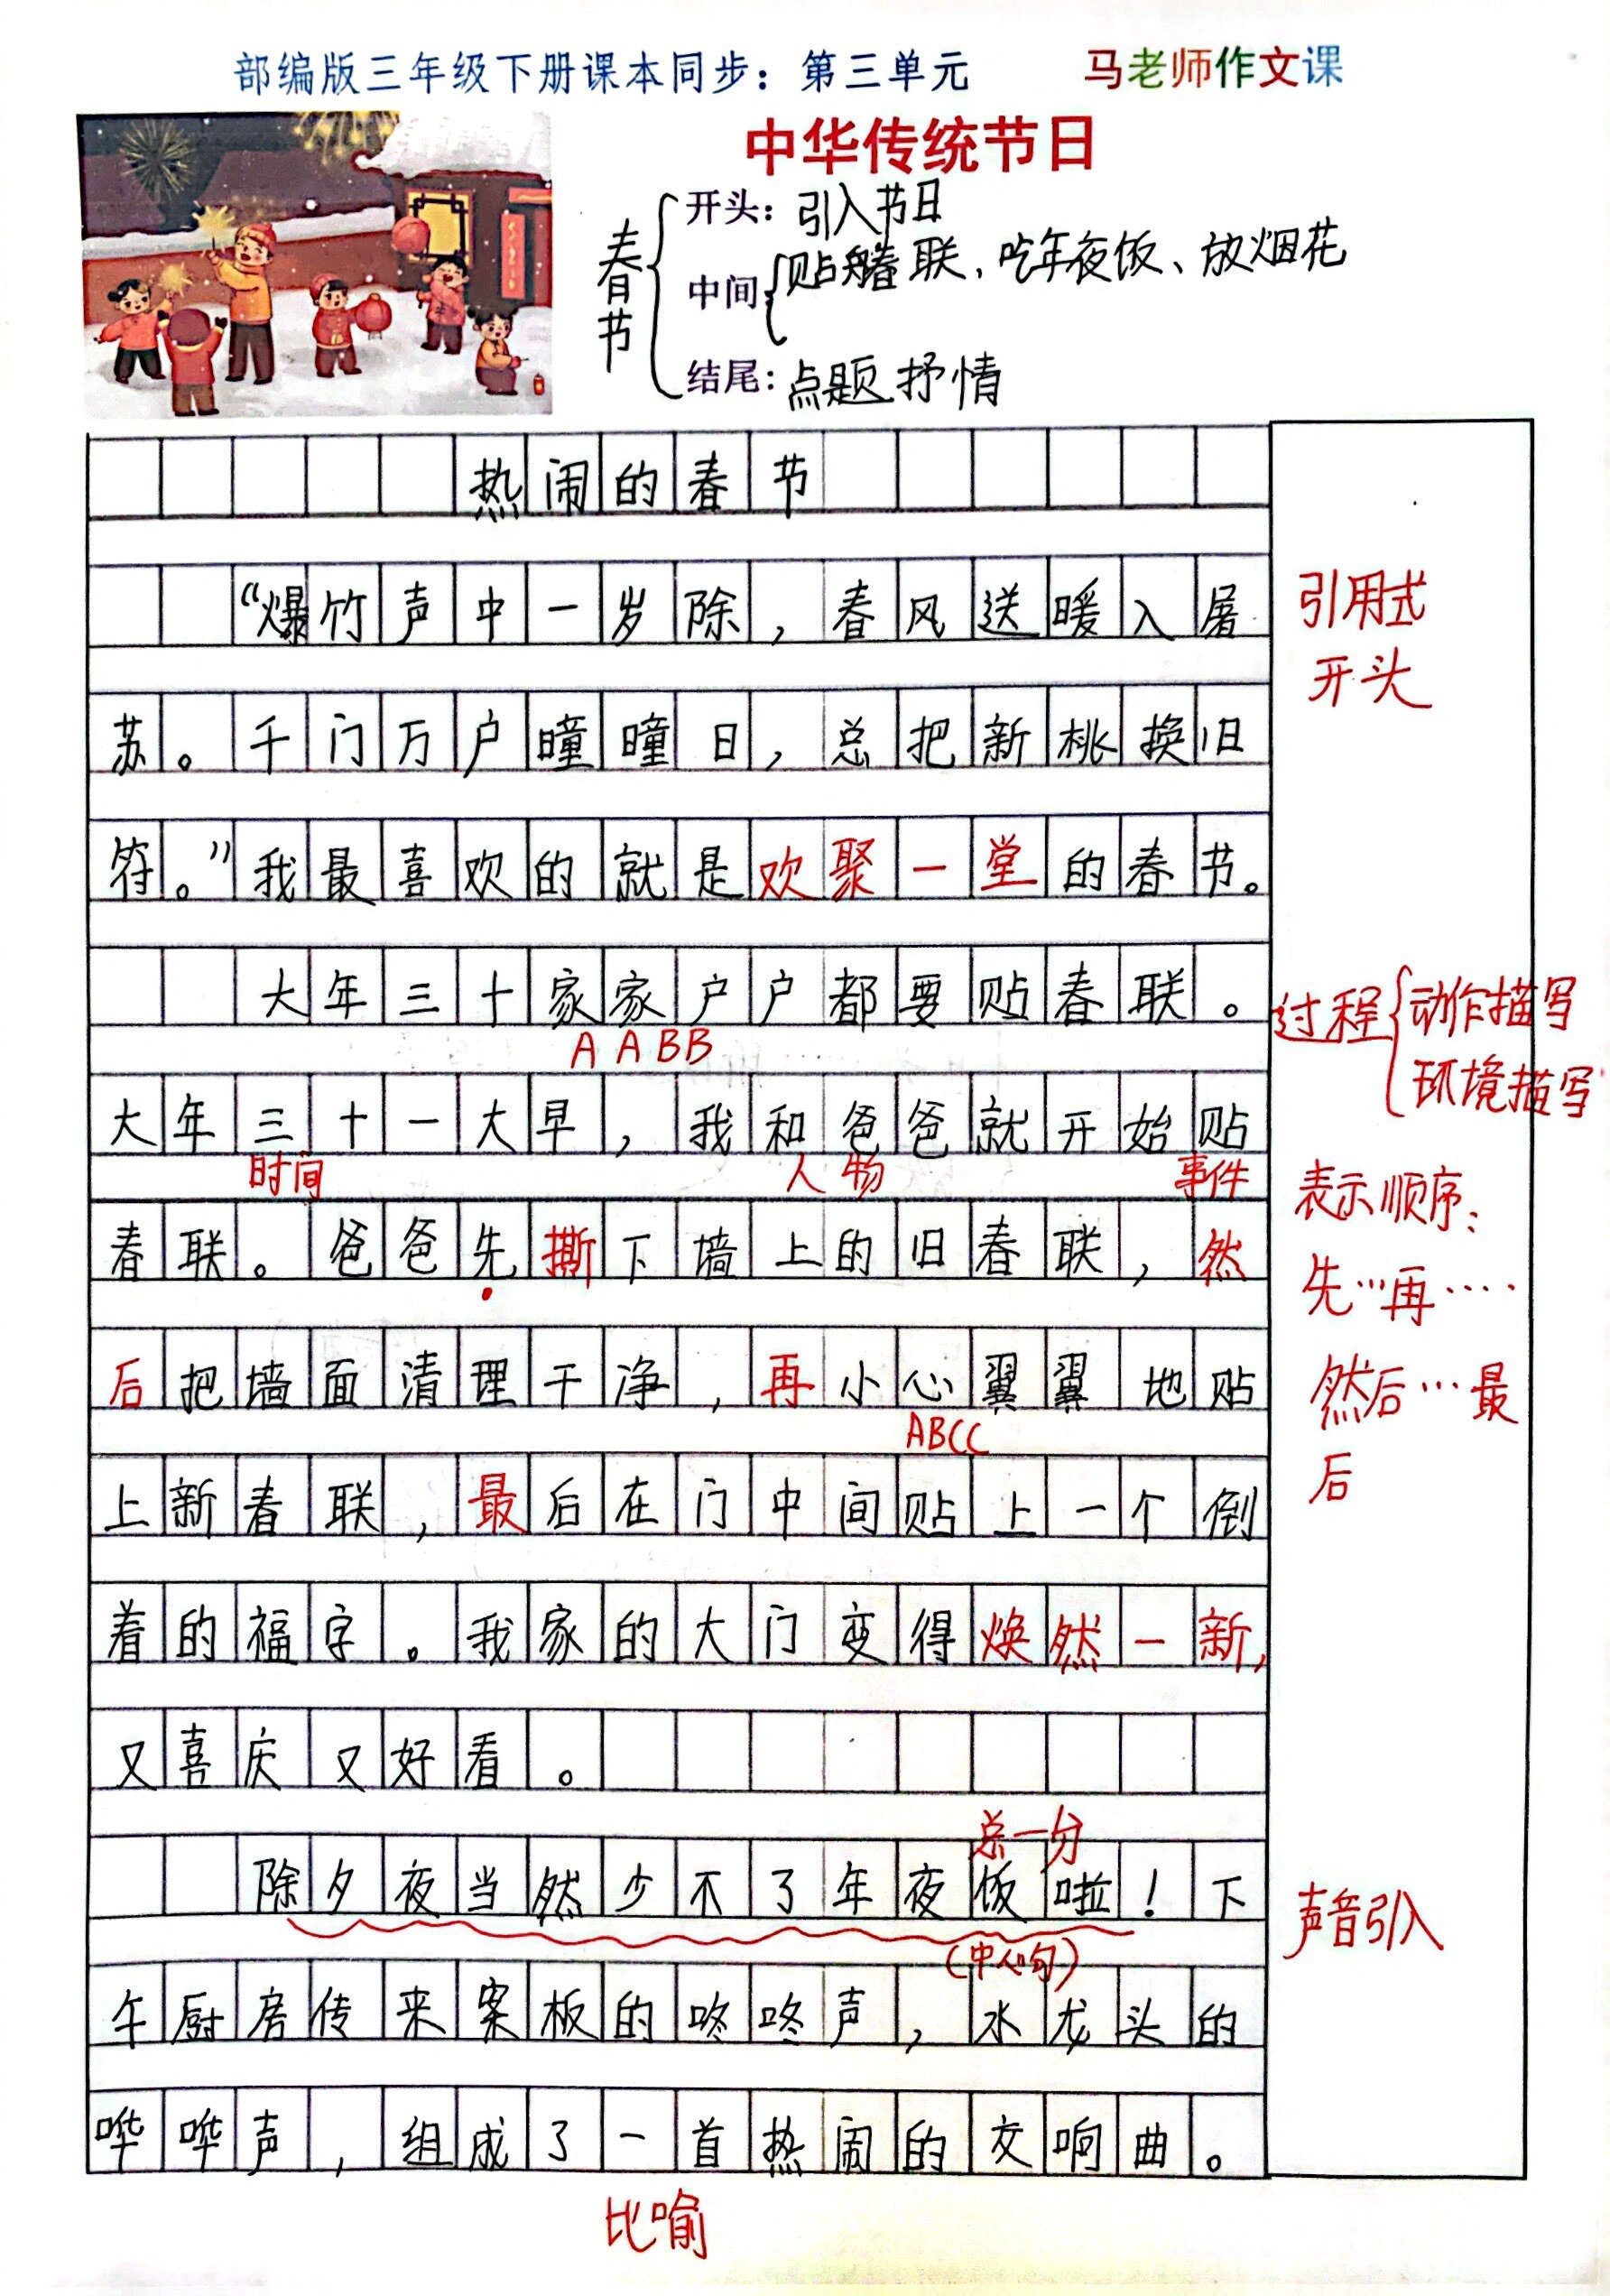 部编版三年级下册课本同步：第三单元
马老师作文课
中华传统节日
春节
开头：引入节日
中间 贴春联、吃年夜饭、放烟花
结尾：点题 抒情
热闹的春节
“爆竹声中一岁除，春风送暖入屠
引用式
开头
苏。千门万户曈曈日，总把新桃换旧
符。”我最喜欢的就是欢聚一堂的春节。
大年三十家家户户都要贴春联。
AABB
过程 动作描写
环境描写
大年三十一大早，我和爸爸就开始贴
时间 人物 事件
表示顺序：
先…再….
然后…最
后
春联。爸爸先撕下墙上的旧春联，然
后把墙面清理干净，再小心翼翼地贴
ABCC
上新春联，最后在门中间贴上一个倒
着的福字。我家的大门变得焕然一新，
又喜庆又好看。
总一分
除夕夜当然少不了年夜饭啦！下
（中心句）
声音引入
午厨房传来案板的咚咚声，水龙头的
哗哗声，组成了一首热闹的交响曲。
比喻